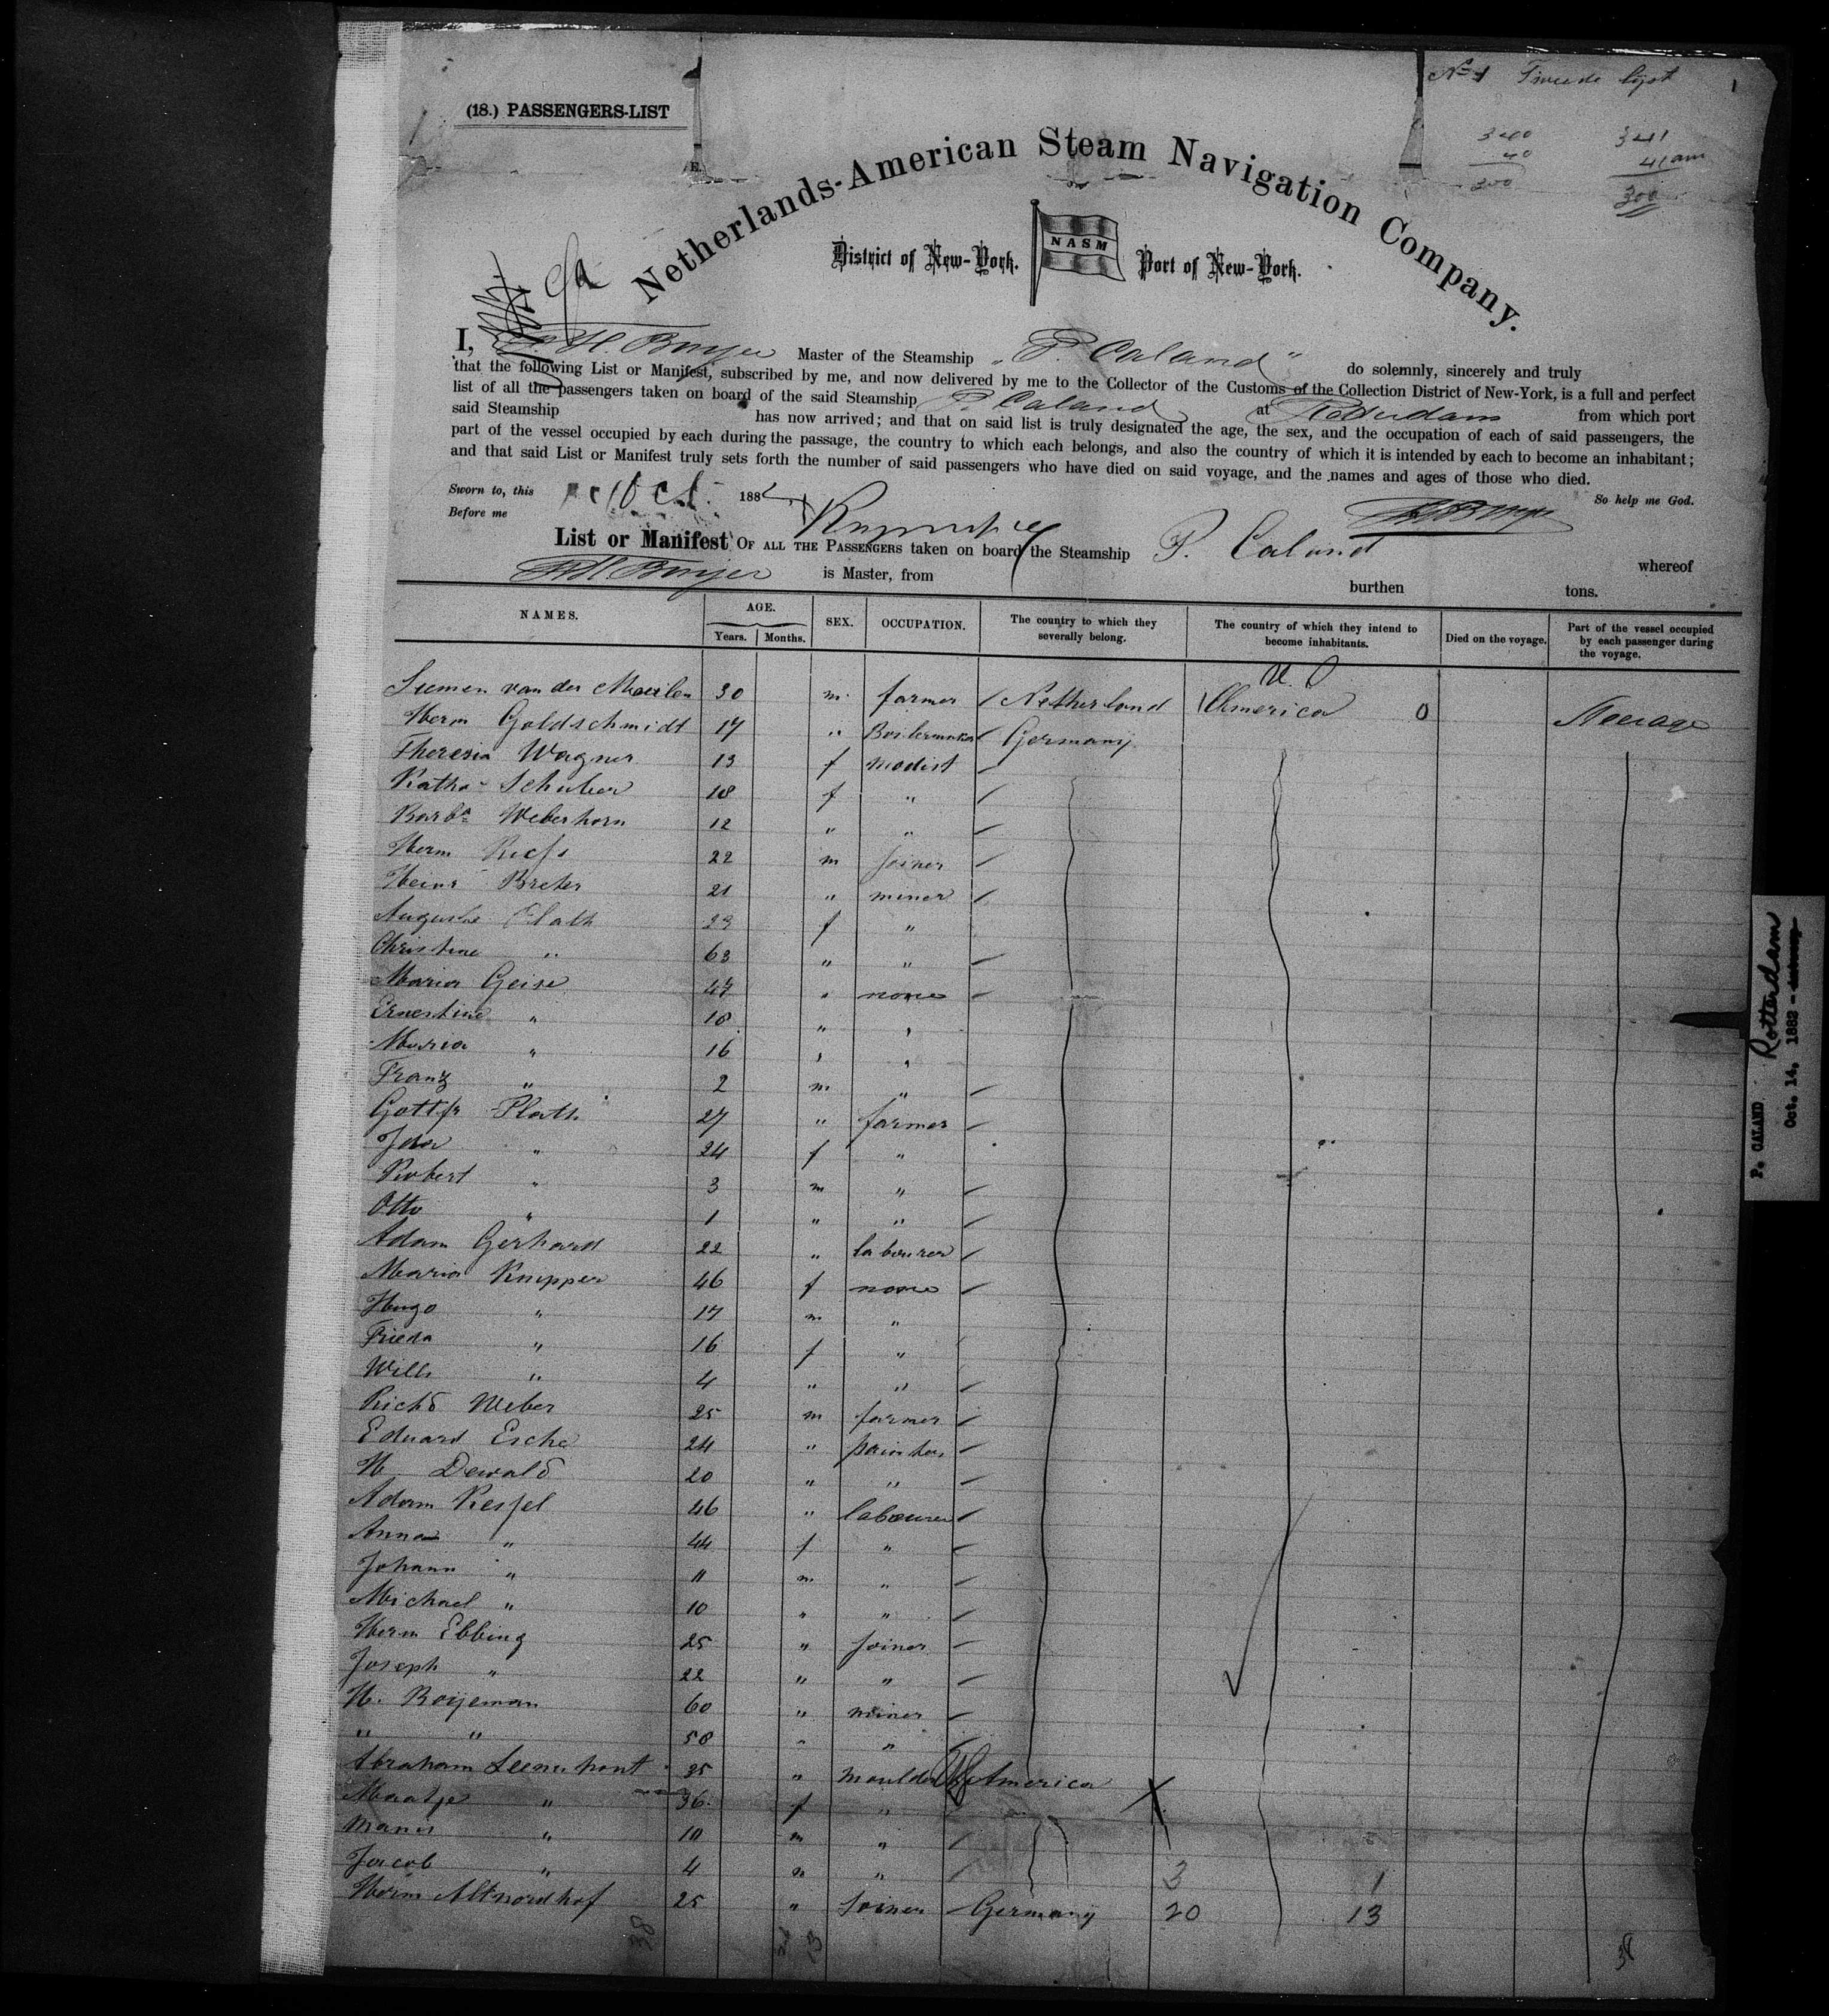 No 1 Tweede lijst 1
(18.) PASSENGERS-LIST
340 341
40 41 am
300 300
Netherlands-American Steam Navigation Company.
District of New-York. NASM Port of New-York.
I, H. Bonjer Master of the Steamship „P. Caland" do solemnly, sincerely and truly
that the following List or Manifest, subscribed by me, and now delivered by me to the Collector of the Customs of the Collection District of New-York, is a full and perfect
list of all the passengers taken on board of the said Steamship P. Caland at Rotterdam from which port
said Steamship has now arrived; and that on said list is truly designated the age, the sex, and the occupation of each of said passengers, the
part of the vessel occupied by each during the passage, the country to which each belongs, and also the country of which it is intended by each to become an inhabitant;
and that said List or Manifest truly sets forth the number of said passengers who have died on said voyage, and the names and ages of those who died.
Sworn to, this Oct. 1882 So help me God.
Before me
List or Manifest OF ALL THE PASSENGERS taken on board the Steamship P. Caland whereof
H Bonjer is Master, from burthen tons.
NAMES. AGE. Years. Months. SEX. OCCUPATION. The country to which they severally belong. The country of which they intend to become inhabitants. Died on the voyage. Part of the vessel occupied by each passenger during the voyage.
van der 30 m farmer Netherland America 0 Steerage
Herm Goldschmidt 17 " Boilermaker Germany
Theresia Wagner 13 f modist
Katha Schuber 18 f "
Barba Weberhorn 12 " "
Herm 22 m joiner
Heinr 21 " miner
Auguste Plath 23 f "
Christine " 63 " "
Maria Geise 47 " none
Ernestine " 18 " "
Maria " 16 " "
Franz " 2 m "
Gottfr Plath 27 " farmer
Ida " 24 f "
Robert " 3 m "
Otto " 1 " "
Adam Gerhard 22 " labourer
Maria Knipper 46 f none
Hugo " 17 m "
Frieda " 16 f "
Willi " 4 " "
Richd Weber 25 m farmer
Eduard Esche 24 " painter
H Dewald 20 " "
Adam Kessel 46 " labourer
Anna " 44 f "
Johann " 11 m "
Michael " 10 " "
Herm Ebbing 25 " joiner
Joseph " 22 " "
H. Boijeman 60 " miner
" " 58 " "
Abraham 35 " moulder America
Maatje " 36 f "
" 10 m "
Jacob " 4 " " 3 1
Herm Altnordhof 25 " joiner Germany 20 13
38 13 38
P. CALAND Rotterdam
Oct. 14, 1882 -